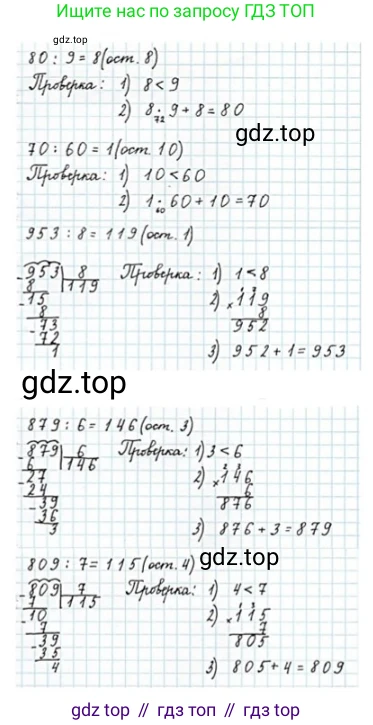 Ищите нас по запросу ГДЗ ТОП
80 : 9 = 8 (ост. 8)
Проверка: 1) 8 < 9
2) 8 · 9 + 8 = 80
72
gdz.top
70 : 60 = 1 (ост. 10)
Проверка: 1) 10 < 60
2) 1 · 60 + 10 = 70
60
953 : 8 = 119 (ост. 1)
- 953 | 8
8 | 119
- 15
8
- 73
72
1
Проверка: 1) 1 < 8
2) × 119
8
952
3) 952 + 1 = 953
gdz.top
879 : 6 = 146 (ост. 3)
- 879 | 6
6 | 146
- 27
24
- 39
36
3
Проверка: 1) 3 < 6
2) × 146
6
876
3) 876 + 3 = 879
809 : 7 = 115 (ост. 4)
gdz.top
- 809 | 7
7 | 115
- 10
7
- 39
35
4
Проверка: 1) 4 < 7
2) × 115
7
805
3) 805 + 4 = 809
gdz top // гдз топ // gdz.top